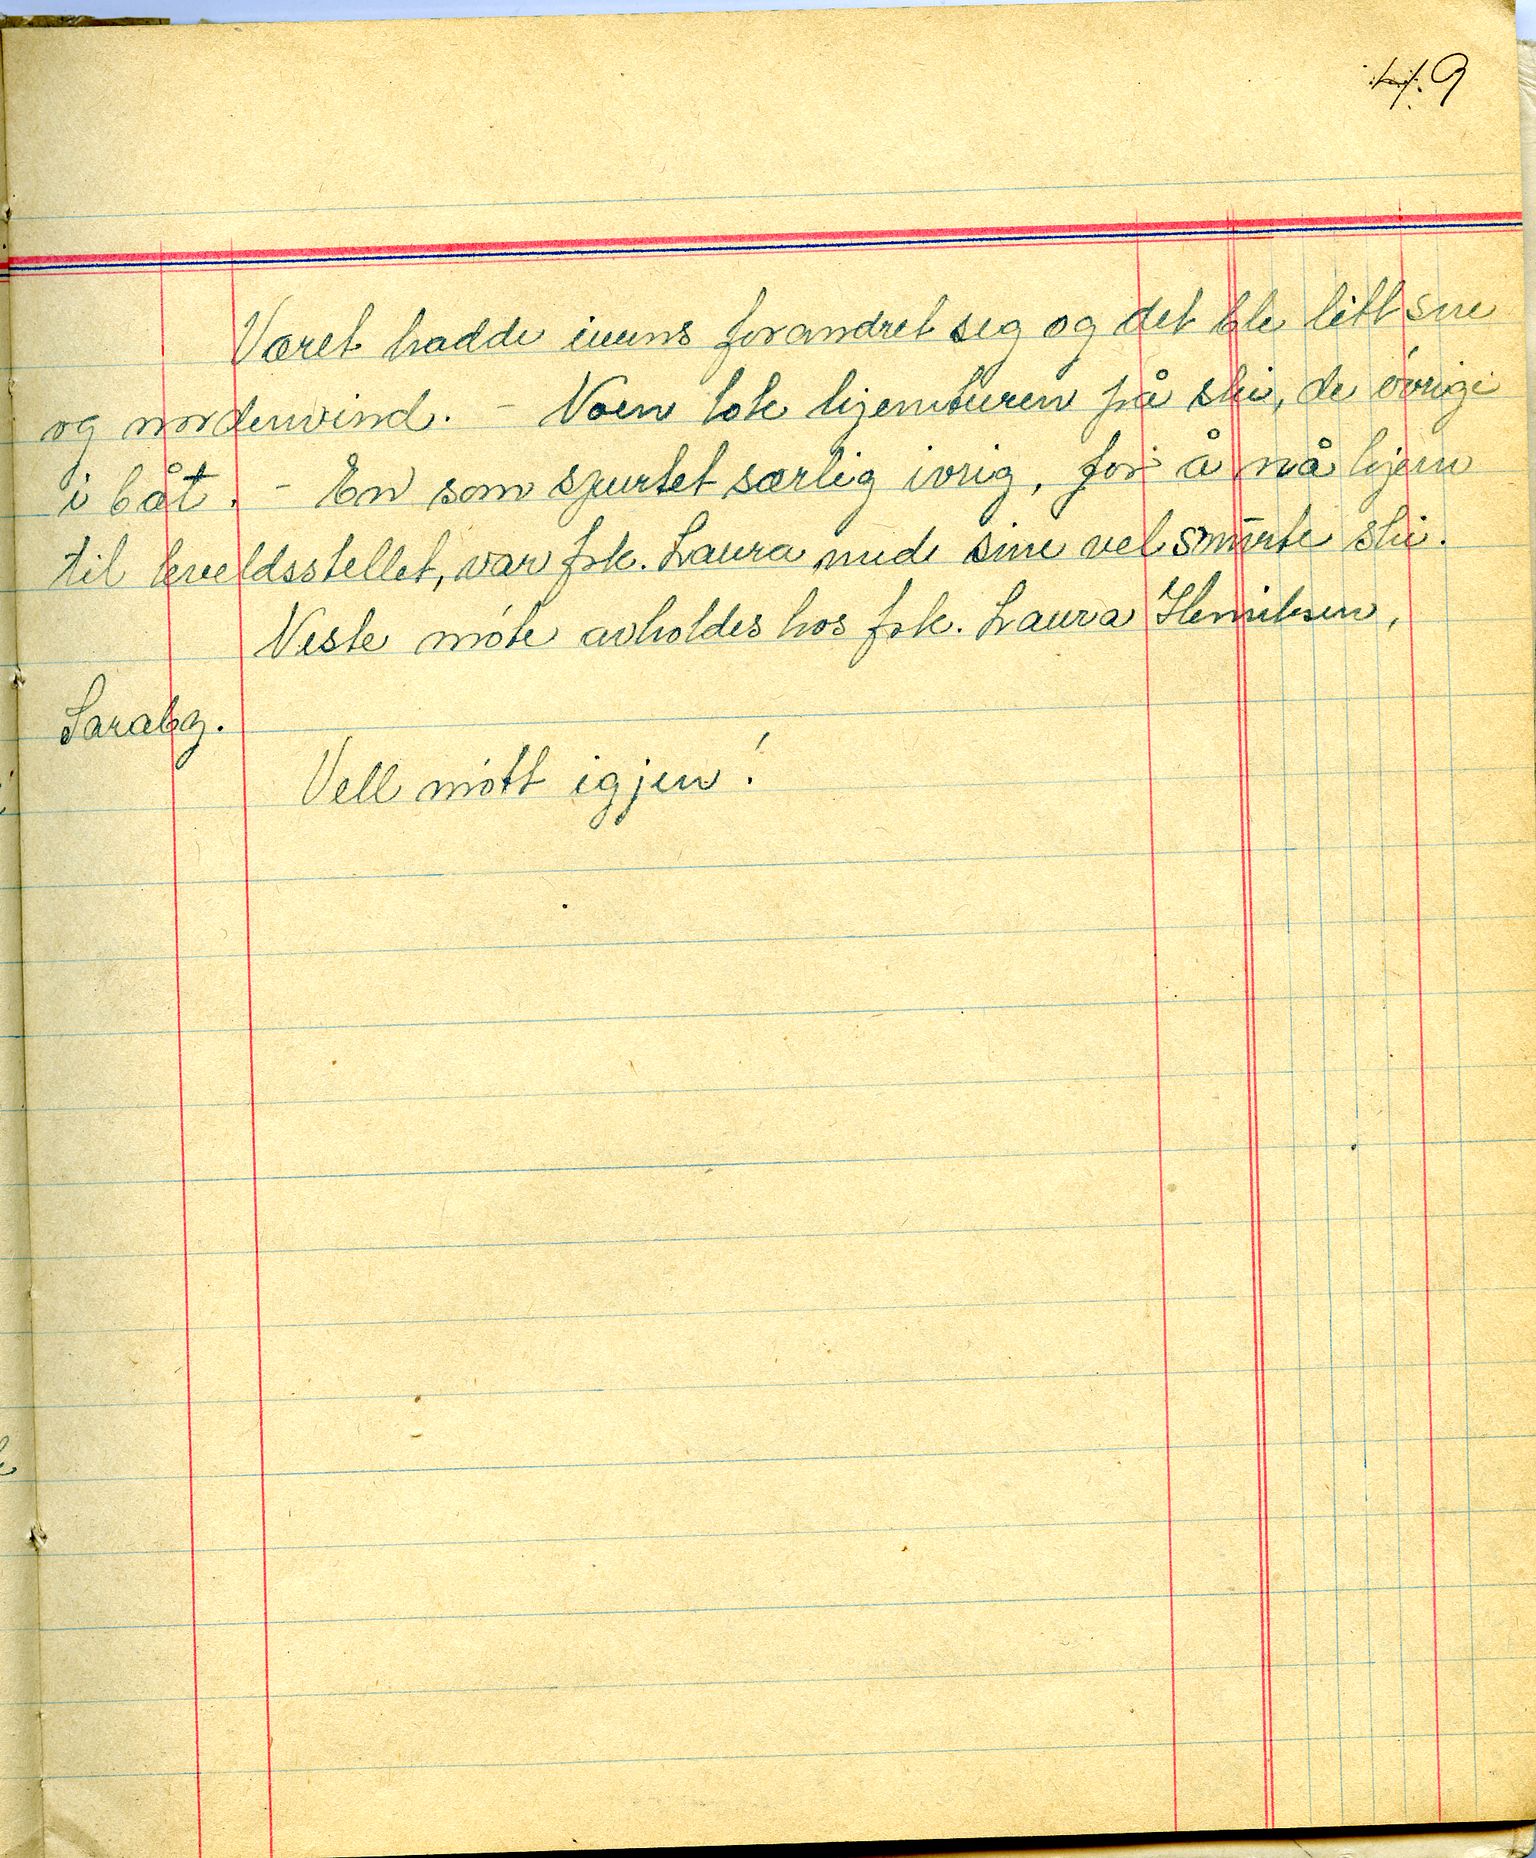 49
Været hadde imens forandret seg og det ble litt sne
og nordenvind. - Noen tok hjemturen på ski, de øvrige
i båt. - En som spurtet særlig ivrig, for å nå hjem
til kveldsstellet, var frk. Laura med sine velsmurte ski.
Neste møte avholdes hos frk. Laura Henriksen,
Saraby.
Vell møtt igjen!